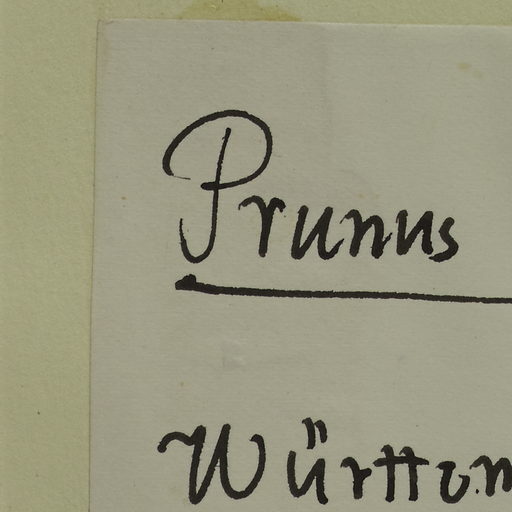 Prunus
Württem